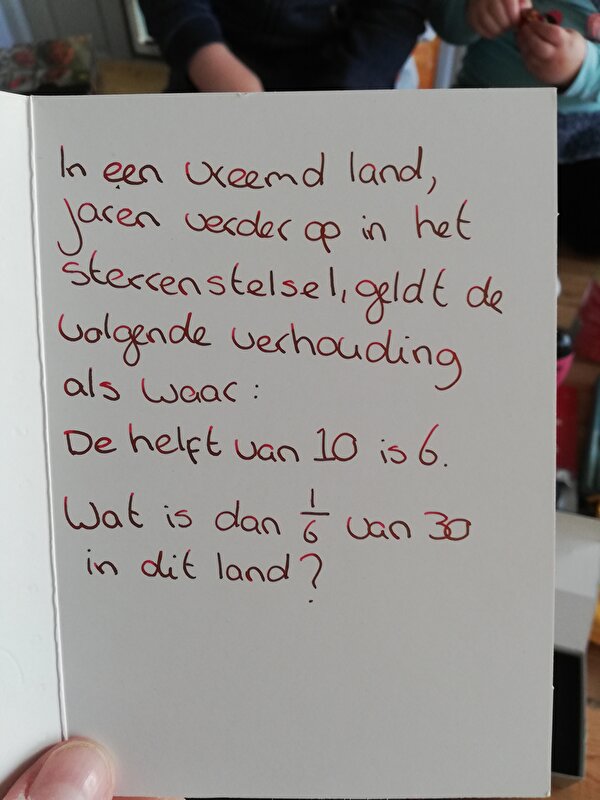 In een vreemd land,
jaren verder op in het
sterrenstelsel, geldt de
volgende verhouding
als waar:
De helft van 10 is 6.
Wat is dan 1/6 van 30
in dit land?